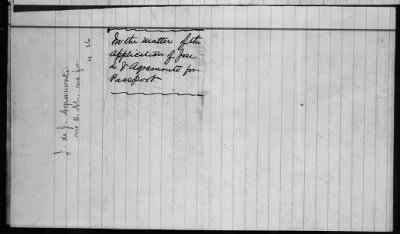 In the matter of the
application of Jose
de J Agramonte for
Passport
J. de J. Agramonte